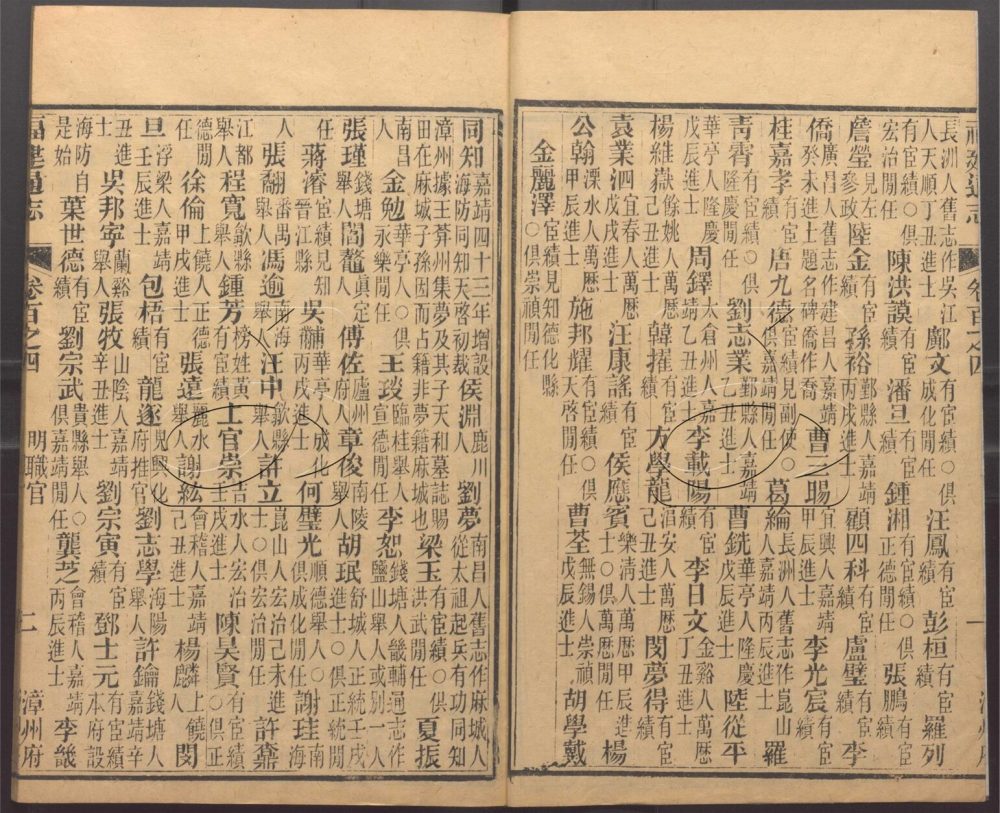 長洲人舊志作吳江人天順丁丑進士 鄺文 有宦績○俱成化間任 汪鳳 有宦績 彭桓 有宦績 羅列
有宦績○俱宏治間任 陳洪謨 有宦績 潘旦 有宦績 鍾湘 有宦績○俱正德間任 張鵬 有宦績
詹瑩 見左參政 陸金 有宦績 孫裕 鄞縣人嘉靖丙戌進士 顧四科 有宦績 盧璧 有宦績 李
僑 廣昌人舊志作建昌人嘉靖癸未進士題名碑僑作喬 曹三暘 宜興人嘉靖甲辰進士 李光宸 有宦績
桂嘉孝 有宦績 唐九德 有宦績見副使○俱嘉靖間任 葛綸 長洲人舊志作崑山人嘉靖丙辰進士 羅
青霄 有宦績○俱隆慶間任 劉志業 鄞縣人嘉靖乙丑進士 曹銑 華亭人隆慶戊辰進士 陸從平
華亭人隆慶戊辰進士 周鐸 太倉州人嘉靖乙丑進士 李載陽 有宦績 李日文 金谿人萬歷丁丑進士
楊維嶽 餘姚人萬歷己丑進士 韓擢 有宦績 方學龍 安人萬歷己丑進士 閔夢得 有宦績
袁業泗 宜春人萬歷進士 汪康謠 有宦績 侯應賓 樂清人萬歷甲辰進士○俱萬歷間任 楊
公翰 溧水人萬歷甲辰進士 施邦耀 有宦績○俱天啓間任 曹荃 無錫人崇禎戊辰進士 胡學戴
金麗澤 宦績見知德化縣○俱崇禎間任
同知 嘉靖四十三年增設海防同知天啓初裁 侯淵 鹿川人 劉夢 南昌人舊志作麻城人從太祖起兵有功同知
漳州據王莽州集夢及其子天和墓誌賜田在麻城子孫因而占籍非夢籍麻城也 梁玉 有宦績○俱洪武間任 夏振
南昌人 金勉 華亭人○俱永樂間任 王琰 臨桂舉人宣德間任 李恕 錢塘人畿輔通志作鹽山舉人或別一人
張瑾 錢塘舉人 閻鼇 真定人 傅佐 廬州府人 章俊 南陵舉人 胡珉 舒城人正統壬戌進士○俱正統間
任 蔣濬 宦績見知晉江縣 吳黼 華亭人成化丙戌進士 何璧光 順德舉人○俱成化間任 謝珪 南海
人 張翻 番禺舉人 馮逾 南海舉人 汪中 歙縣舉人 許立 崑山人宏治己未進士○俱宏治間任 許鼐
江都舉人 程寬 歙縣舉人 鍾芳 有宦績榜姓黃 士官崇 吉水人宏治壬戌進士 陳吳賢 有宦績○俱正
德間任 徐倫 上饒人正德甲戌進士 張遠 麗水舉人 謝紘 會稽人嘉靖己丑進士 楊麟 上饒人 閔
旦 浮梁人嘉靖壬辰進士 包梧 有宦績 龍遂 見興化府推官 劉志學 海陽舉人 許鑰 錢塘人嘉靖辛
丑進士 吳邦寧 蘭谿舉人 張牧 山陰人嘉靖辛丑進士 劉宗寅 有宦績 鄧士元 有宦績本府設
海防自是始 葉世德 有宦績 劉宗武 貴縣舉人○俱嘉靖間任 龔芝 會稽人嘉靖丙辰進士 李畿
福建通志 卷百之四 明職官 二 漳州府